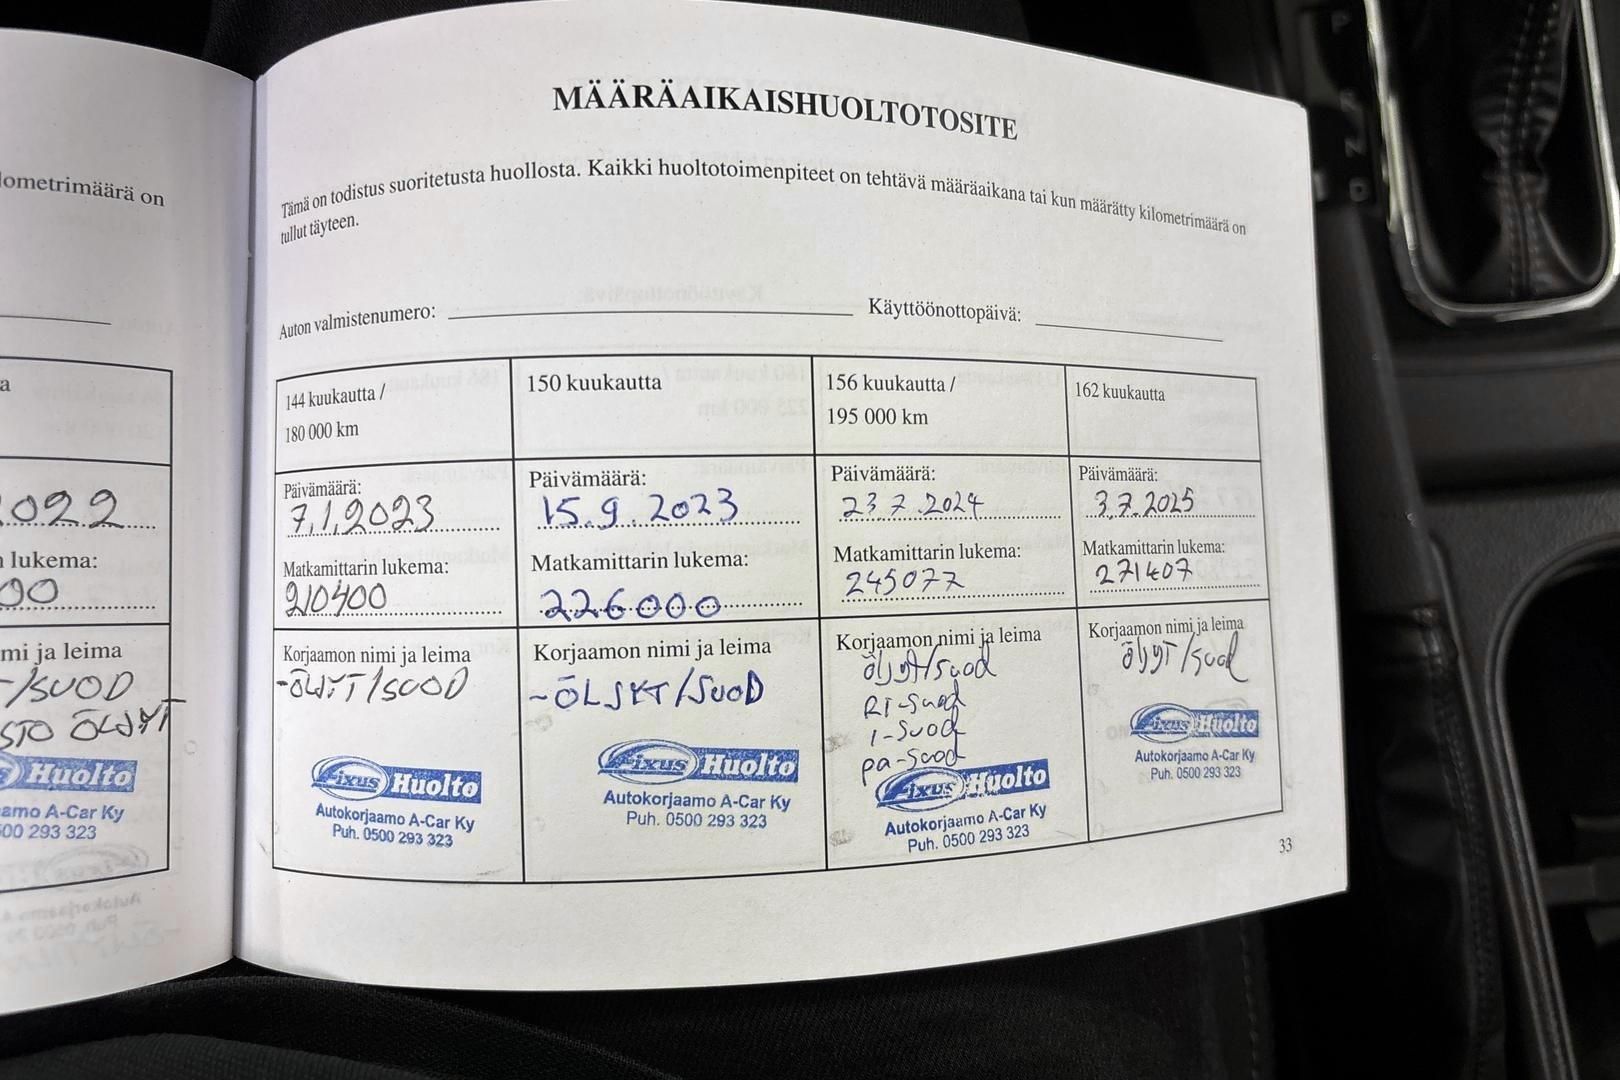 lometrimäärä on
a
2022
lukema:
00
mi ja leima
-/SUOD
STO ÖLJYT
Huolto
aamo A-Car Ky
500 293 323
MÄÄRÄAIKAISHUOLTOTOSITE
Tämä on todistus suoritetusta huollosta. Kaikki huoltotoimenpiteet on tehtävä määräaikana tai kun määrätty kilometrimäärä on
tullut täyteen.
Auton valmistenumero: Käyttöönottopäivä:
144 kuukautta /
180 000 km
Päivämäärä:
7.1.2023
Matkamittarin lukema:
210400
Korjaamon nimi ja leima
-ÖLJYT/SUOD
Fixus Huolto
Autokorjaamo A-Car Ky
Puh. 0500 293 323
150 kuukautta
Päivämäärä:
15.9.2023
Matkamittarin lukema:
226000
Korjaamon nimi ja leima
-ÖLJYT/SUOD
Fixus Huolto
Autokorjaamo A-Car Ky
Puh. 0500 293 323
156 kuukautta /
195 000 km
Päivämäärä:
23.7.2024
Matkamittarin lukema:
245077
Korjaamon nimi ja leima
öljyt/suod
RT-suod
i-suod
pa-suod
Fixus Huolto
Autokorjaamo A-Car Ky
Puh. 0500 293 323
162 kuukautta
Päivämäärä:
3.7.2025
Matkamittarin lukema:
271407
Korjaamon nimi ja leima
öljyt/suod
Fixus Huolto
Autokorjaamo A-Car Ky
Puh. 0500 293 323
33